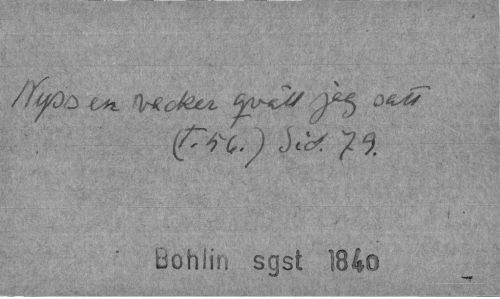 Nyss en vacker qväll jag satt
(T. 56.) Sid. 79.
Bohlin sgst 1840